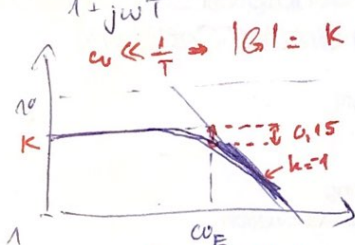 1+jωT
ω ≪ 1/T ⇒ |G| = K
10
K
0,15
k=-1
1
ω_E